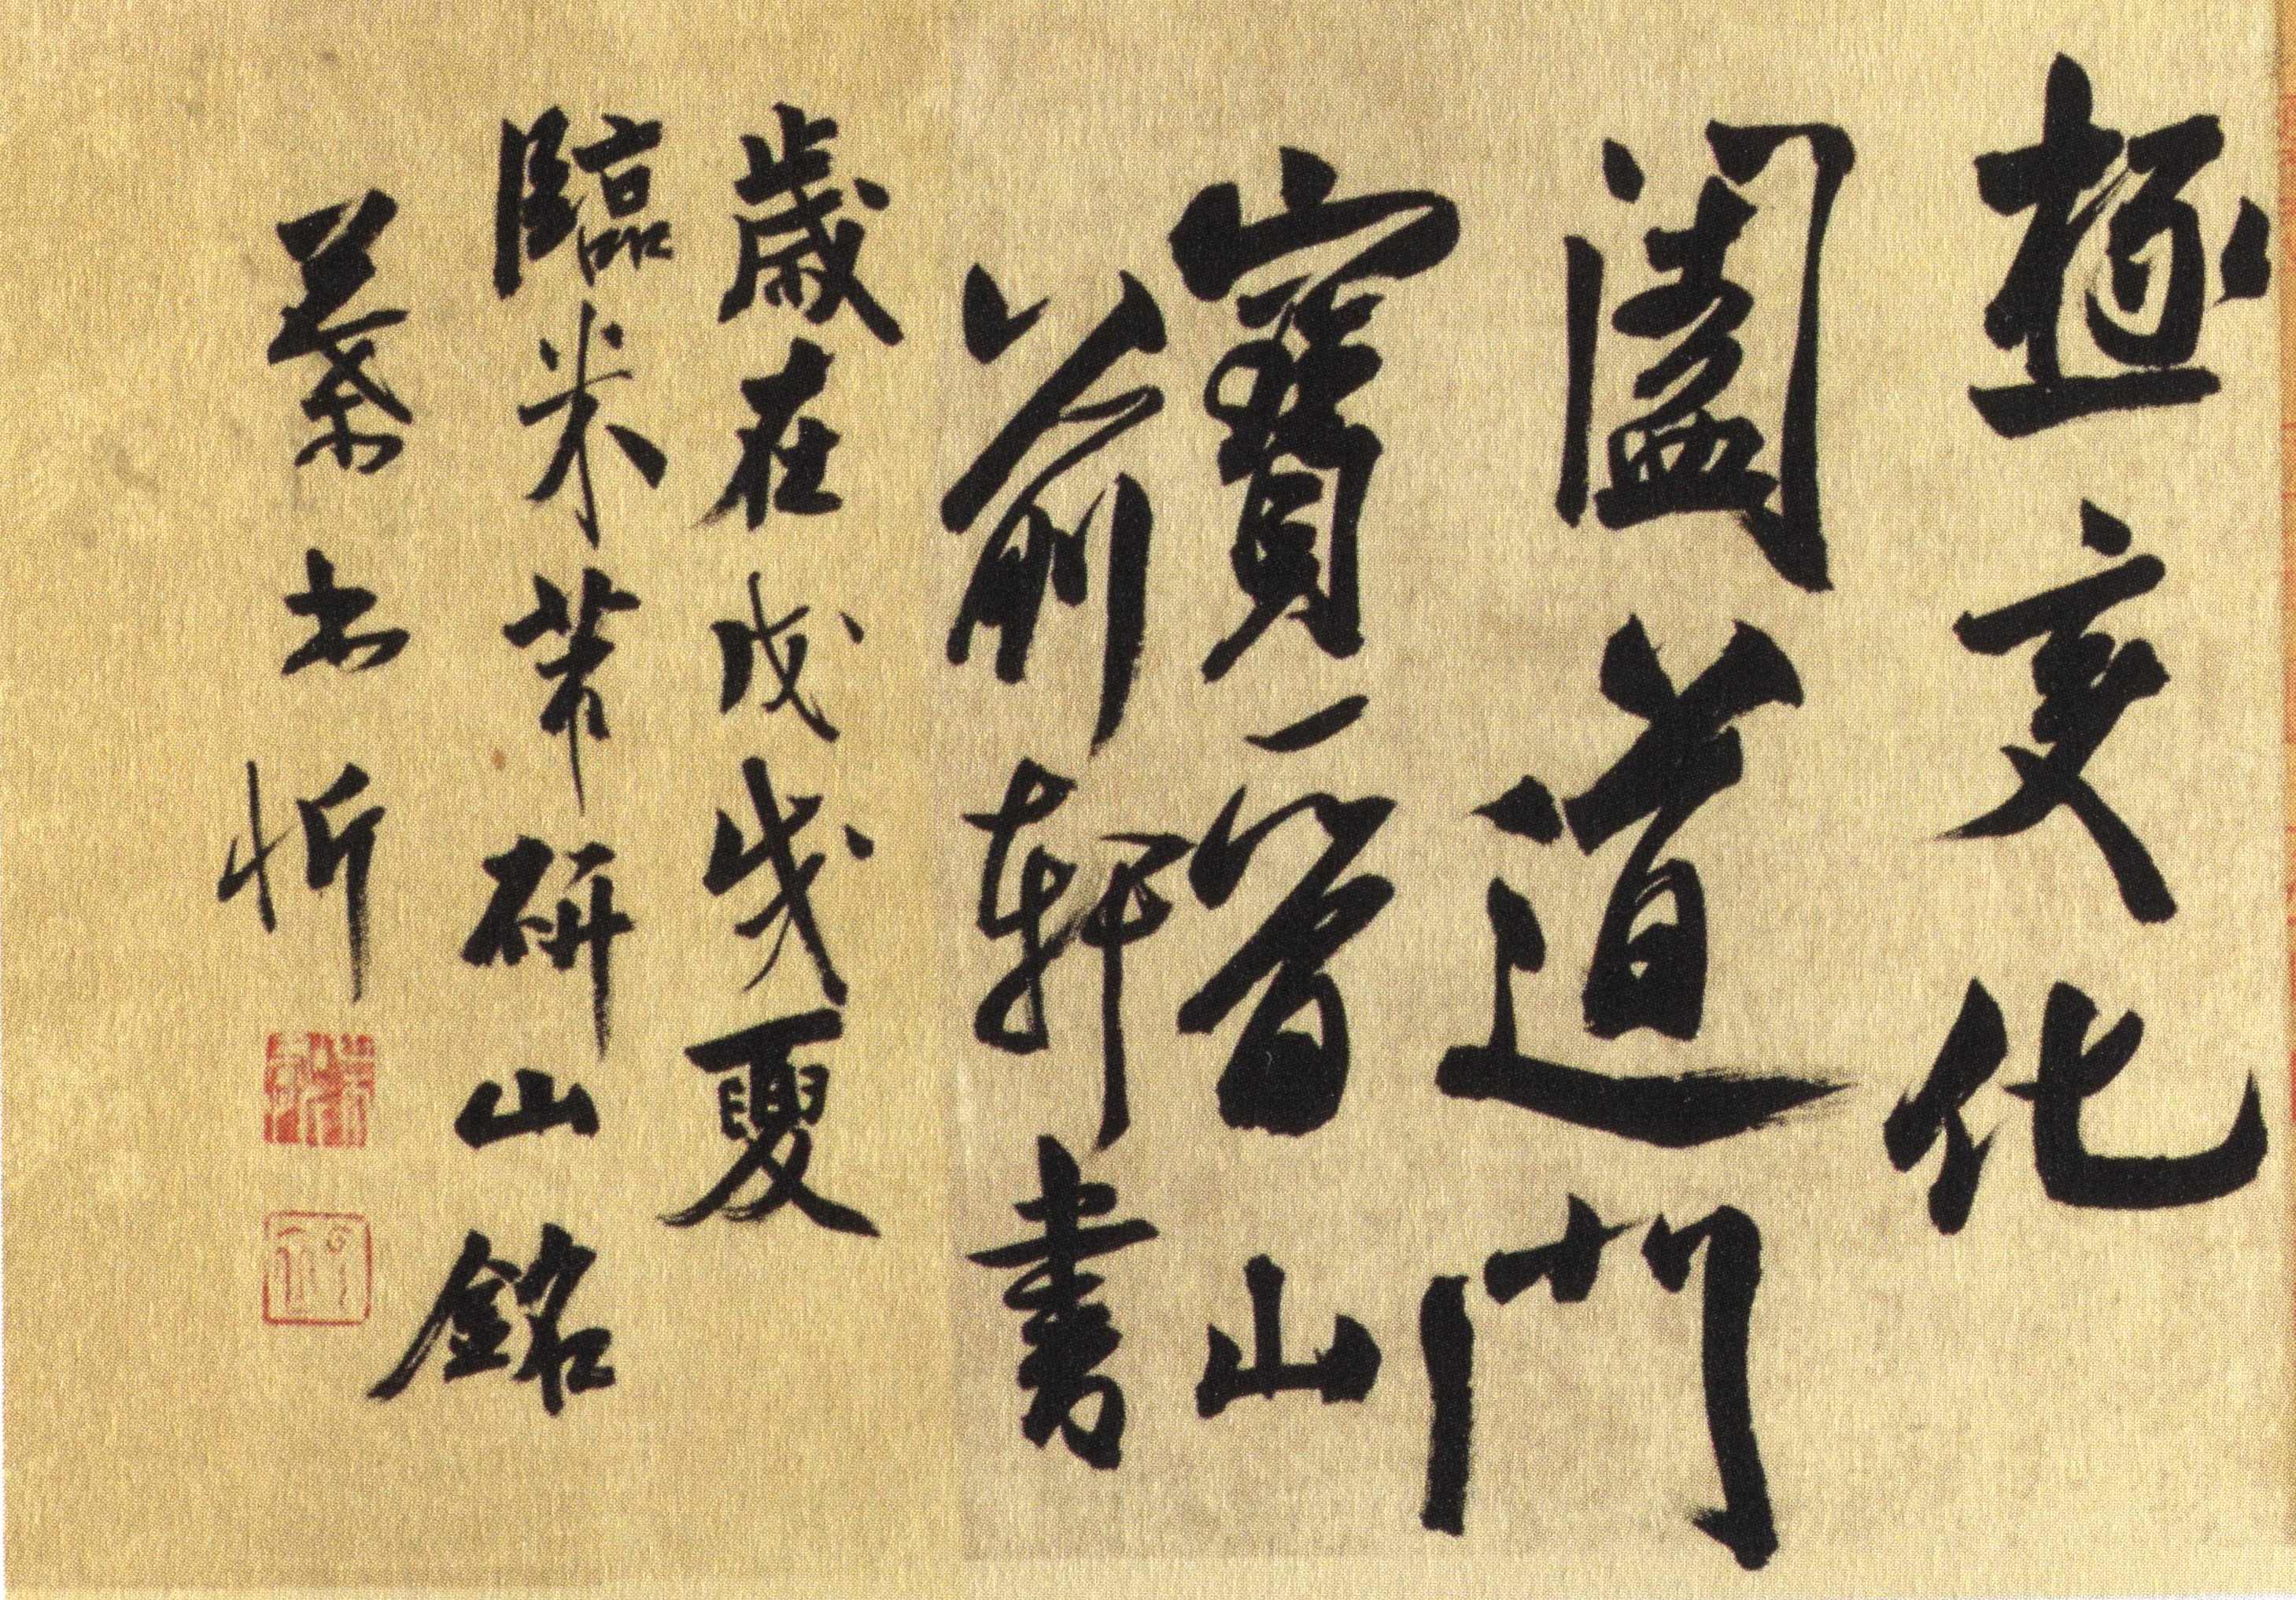 極變化
闔道門
寶晉山
前軒書
歲在戊戌夏
臨米芾研山銘
忻